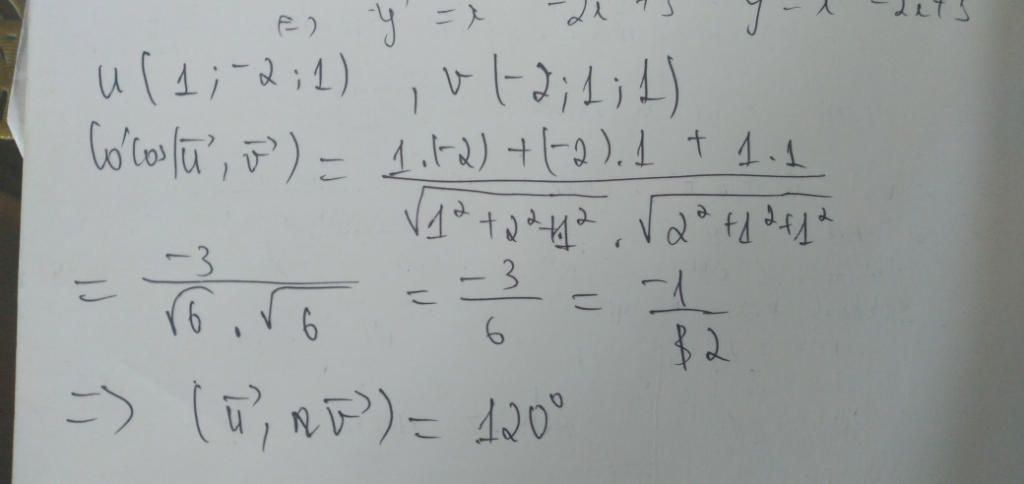 => y' = x - 2x + 3 y - x - 2x + 3
u(1;-2;1) , v(-2;1;1)
Có cos(u⃗, v⃗) = \frac{1.(-2)+(-2).1 + 1.1}{\sqrt{1²+2²+1²} . \sqrt{2²+1²+1²}}
= \frac{-3}{\sqrt{6} . \sqrt{6}} = \frac{-3}{6} = \frac{-1}{2}
=> (u⃗, v⃗) = 120°